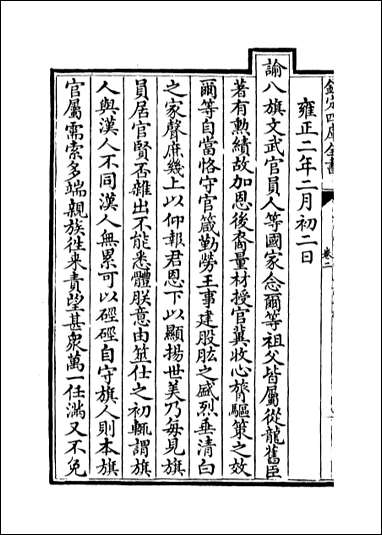 欽定四庫全書
卷二
雍正二年二月初二日
諭八旗文武官員人等國家念爾等祖父皆屬從龍舊臣
著有勲績故加恩後裔量材授官冀收心膂驅策之效
爾等自當恪守官箴勤勞王事建股肱之盛烈垂清白
之家聲庶幾上以仰報君恩下以顯揚世美乃每見旗
員居官賢否雜出不能悉體朕意由筮仕之初輒謂旗
人與漢人不同漢人無累可以硜硜自守旗人則本旗
官屬需索多端親族徃來責望甚衆萬一任滿又不免